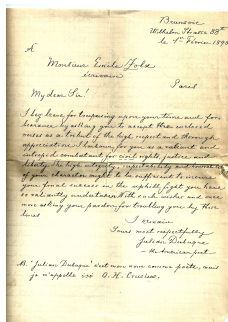 Brunswic
le 1er Février 1898
A
Monsieur Emile Zola
écrivain
Paris
My dear Sir!
I beg leave for trespassing upon your time and for-
bearance by asking you to accept these enclosed
verses as a tribute of the high respect and thorough
appreciation I harbour for you as a valiant and
intrepid combatant for civil rights, justice and
liberty. The high integrity, and
of your character ought to be sufficient to secure
your final success in the uphill fight you have
so valiantly undertaken. With such wishes and once
more asking your pardon for troubling you by these
lines
I remain
Yours most respectfully
Julian Dubuque
American poet
NB. "Julian Dubuque" c'est mon nom comme poète, mais
je m'appelle